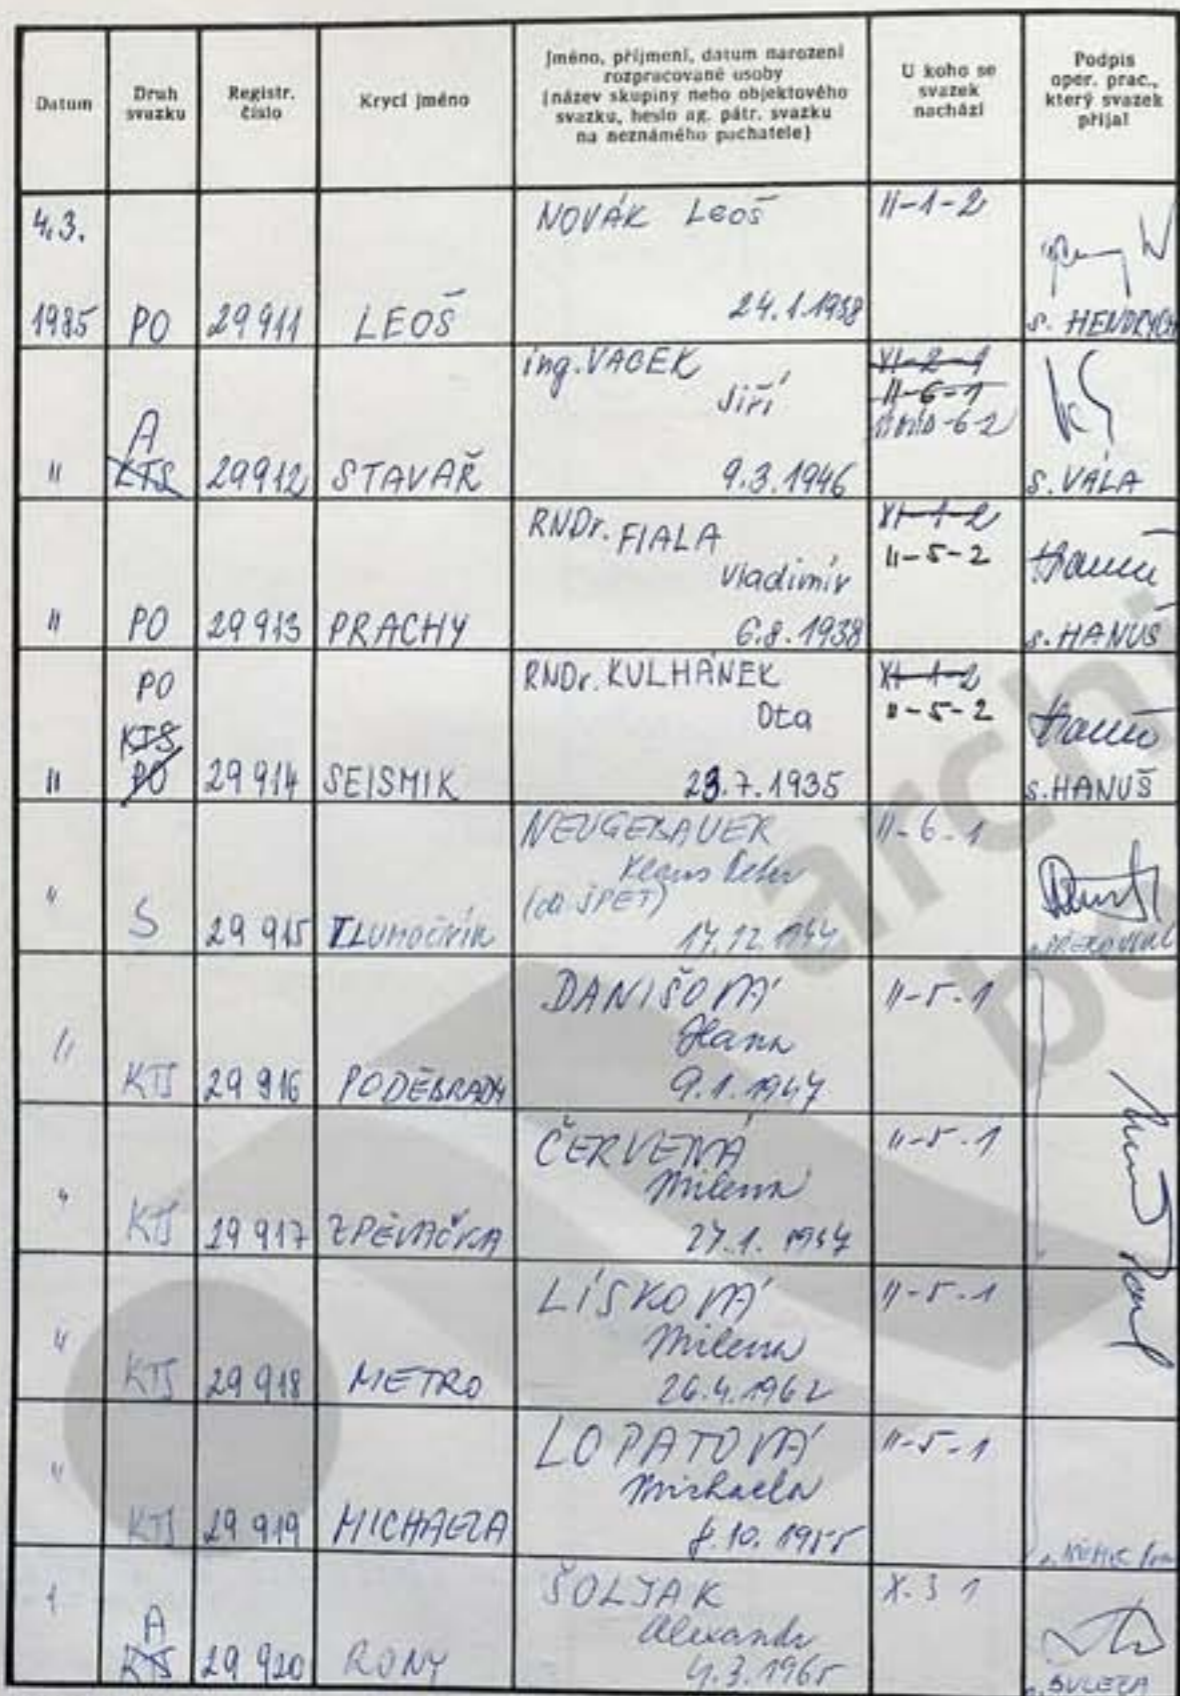 Datum
Druh
svazku
Registr.
číslo
Krycí jméno
Jméno, příjmení, datum narození
rozpracované osoby
(název skupiny nebo objektového
svazku, heslo ag. pátr. svazku
na neznámého pachatele)
U koho se
svazek
nachází
Podpis
oper. prac.,
který svazek
přijal
4.3.
1985 PO 29911 LEOŠ
NOVÁK Leoš
24.1.1938
II-1-2
s. HENDRYCH
" A
KTS 29912 STAVAŘ
ing. VACEK
Jiří
9.3.1946
XI-2-1
II-6-1
-6-2
s. VÁLA
" PO 29913 PRACHY
RNDr. FIALA
Vladimír
6.8.1938
XI-1-2
II-5-2
s. HANUŠ
PO
KTS
" PO 29914 SEISMIK
RNDr. KULHÁNEK
Ota
23.7.1935
XI-1-2
II-5-2
s. HANUŠ
" S 29915 TLUMOČNÍK
NEUGEBAUER
Klaus Peter
17.12.1944
II-6-1
" KTS 29916 PODĚBRADY
DANIŠOVÁ
Hana
9.1.1947
II-5-1
" KTS 29917 ZPĚVAČKA
ČERVENÁ
Milena
27.1.
II-5-1
" KTS 29918 METRO
LÍSKOVÁ
Milena
26.4.1962
II-5-1
" KTS 29919 MICHAELA
LOPATOVÁ
Michaela
8.10.1955
II-5-1
A
KTS 29920 RONY
ŠOLJAK
Alexandr
4.3.1965
X-3 1
archi